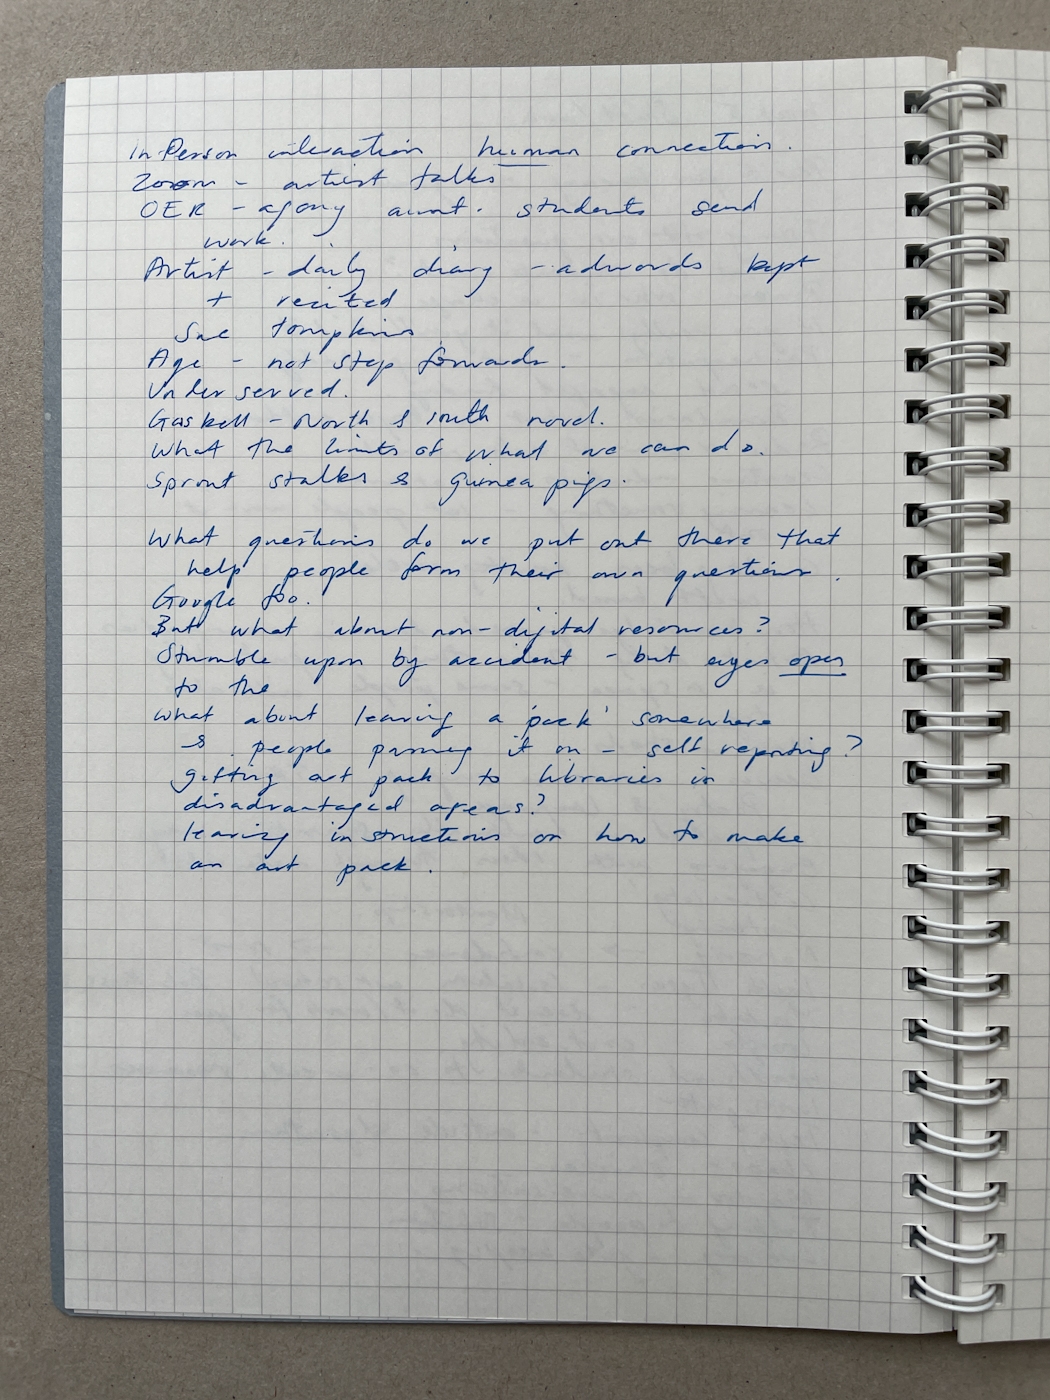 In-Person interaction human connection.
Zoom - artist talks
OER - agony aunt. students send
work.
Artist - daily diary - adwords kept
+ recited
Sue Tompkins
Age - not step forwards.
Underserved.
Gaskell - North & South novel.
What the limits of what we can do.
Sprout stalks & guinea pigs.
What questions do we put out there that
help people form their own questions.
Google foo.
But what about non-digital resources?
Stumble upon by accident - but eyes open
to the
what about leaving a 'pack' somewhere
& people passing it on - self reporting?
gifting art pack to libraries in
disadvantaged areas?
leaving instructions on how to make
an art pack.